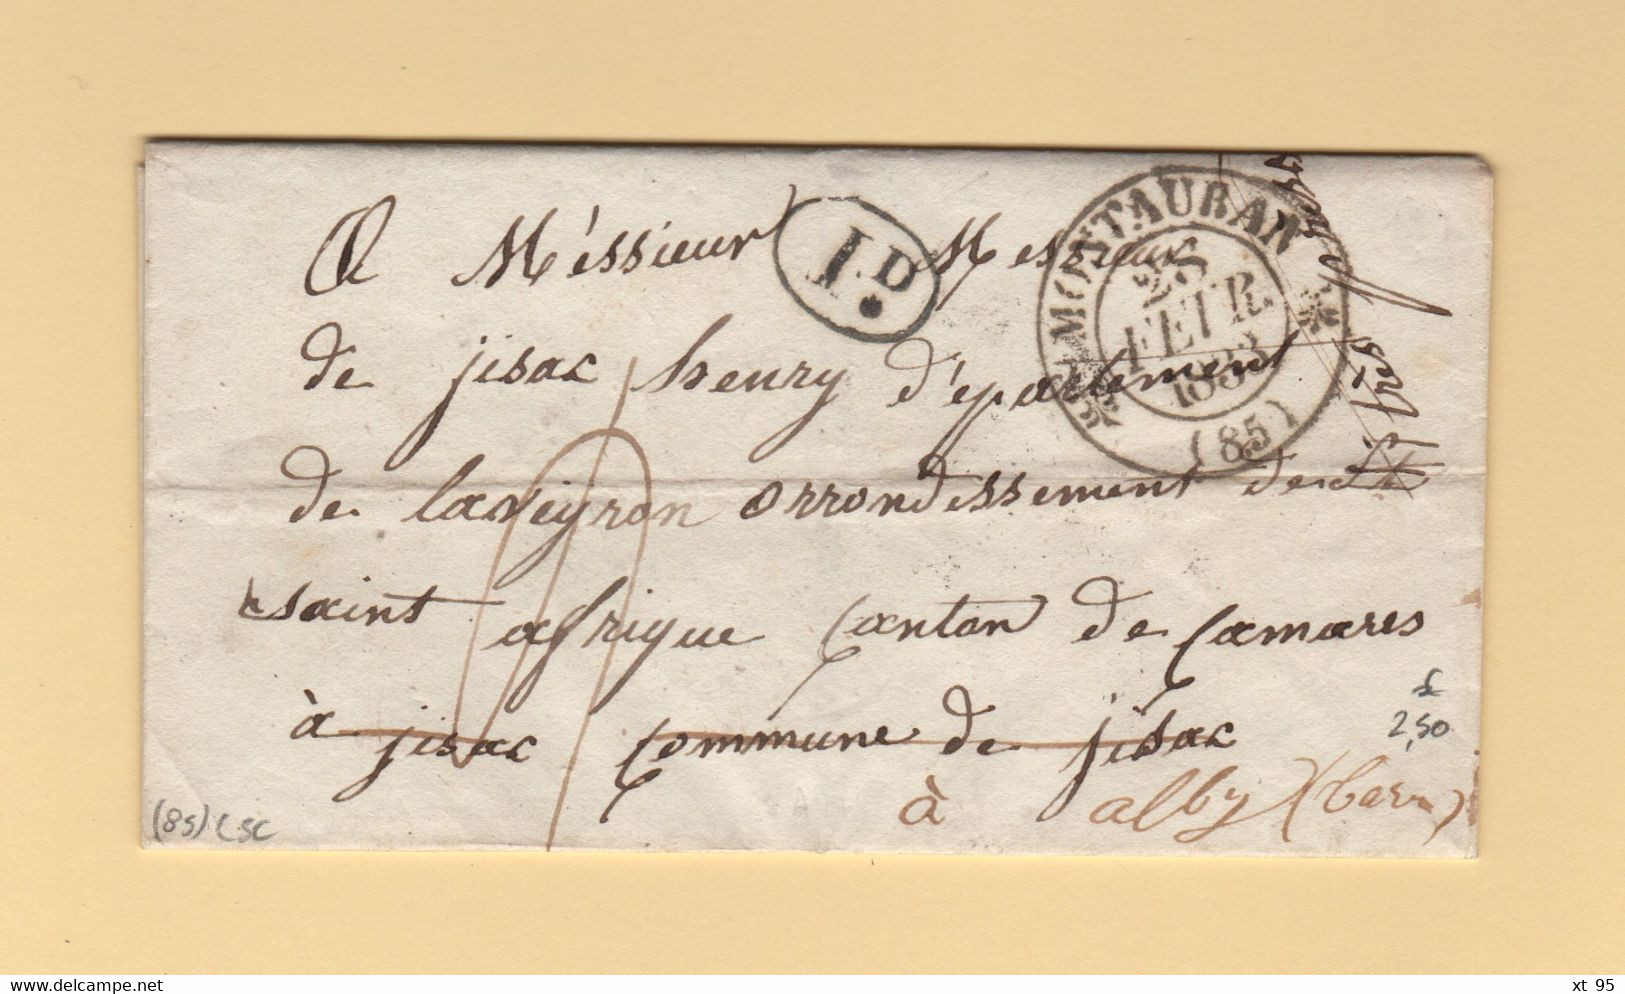 A Méssieur Messieur
I.D
MONTAUBAN
25
FEVR.
1833
(85)
de jisac henry d'épartement
de laveyron orrondissement de
saint afrique Canton de Camares
à jisac Commune de jisac
à alby (tarn)
2,50
(85) LSC
xt 95
www.delcampe.net